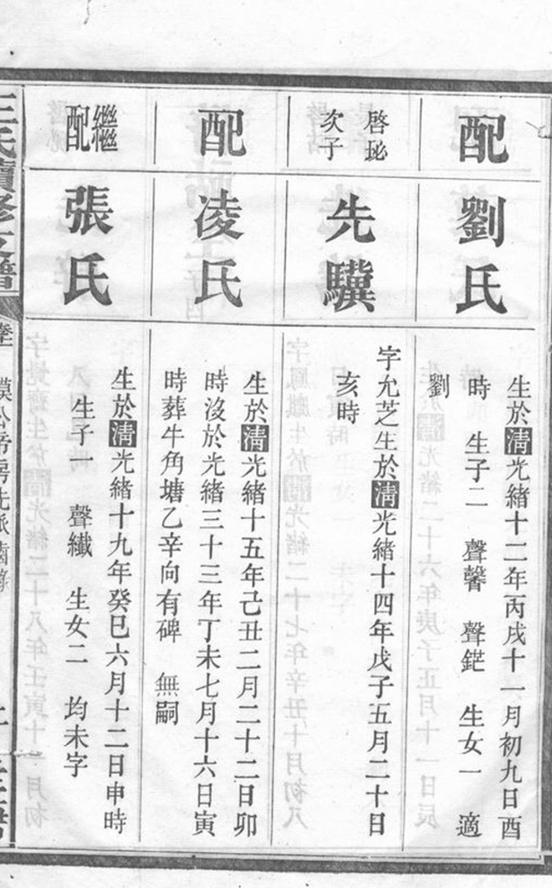 配
劉氏
生於清光緒十二年丙戌十一月初九日酉
時 生子二 聲馨 聲鋩 生女一 適
劉
啓毖
次子
先驥
字允芝生於清光緒十四年戊子五月二十日
亥時
配
凌氏
生於清光緒十五年己丑二月二十二日卯
時沒於光緒三十三年丁未七月十六日寅
時葬牛角塘乙辛向有碑 無嗣
繼
配
張氏
生於清光緒十九年癸巳六月十二日申時
生子一 聲纖 生女二 均未字
王氏續修支譜